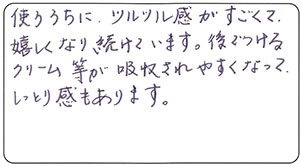 使ううちに、ツルツル感がすごくて、
嬉しくなり続けています。後でつける
クリーム等が吸収されやすくなって、
しっとり感もあります。